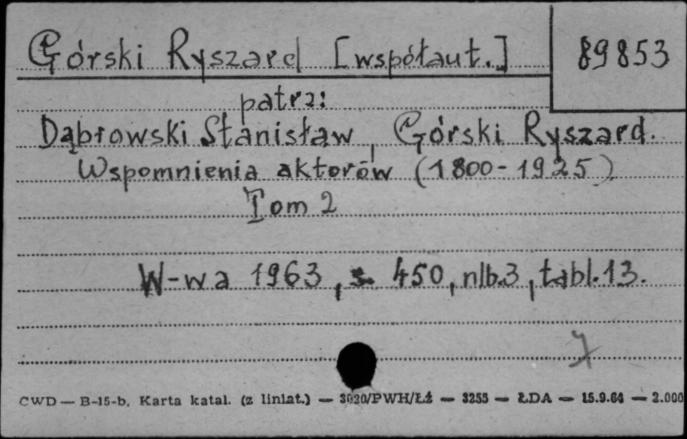 Górski Ryszard [współaut.] 89853
patrz:
Dąbrowski Stanisław, Górski Ryszard.
Wspomnienia aktorów (1800-1925)
Tom 2
W-wa 1963, s. 450, nlb.3, tabl.13.
CWD — B-15-b, Karta katal. (z liniat.) — 3020/PWH/Łż — 3255 — ŁDA — 15.9.64 — 2.000